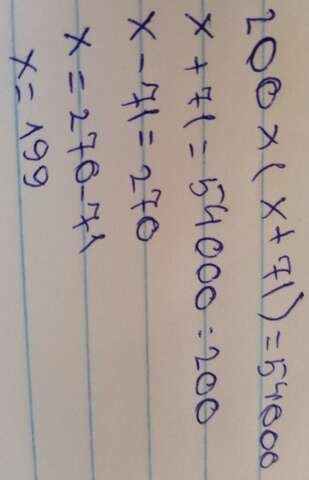 200 x ( x + 71 ) = 54000
x + 71 = 54000 : 200
x - 71 = 270
x = 270 - 71
x = 199